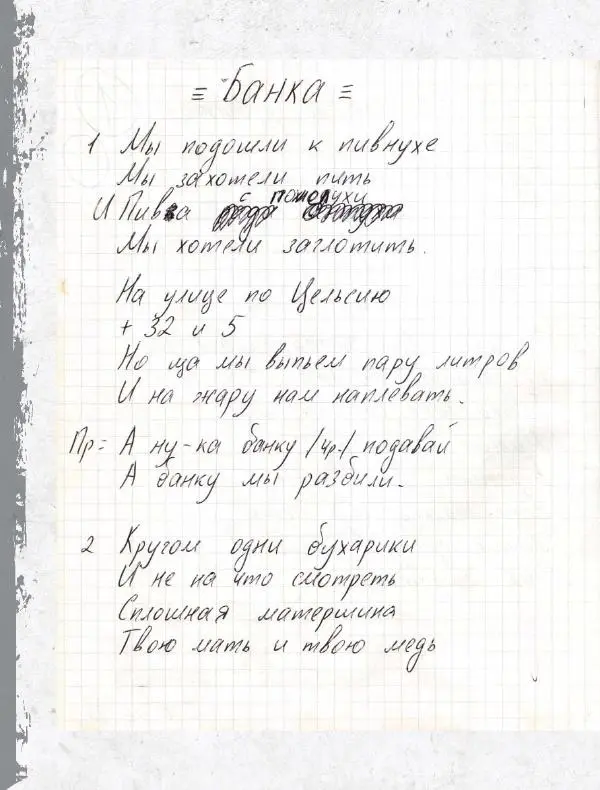 = Банка =
1 Мы подошли к пивнухе
Мы захотели пить
И Пивка с похмелухи
Мы хотели заглотить.
На улице по Цельсию
+ 32 и 5
Но ща мы выпьем пару литров
И на жару нам наплевать.
Пр = А ну-ка банку /чр/ подавай
А банку мы разбили.
2 Кругом одни бухарики
И не на что смотреть
Сплошная матершина
Твою мать и твою медь